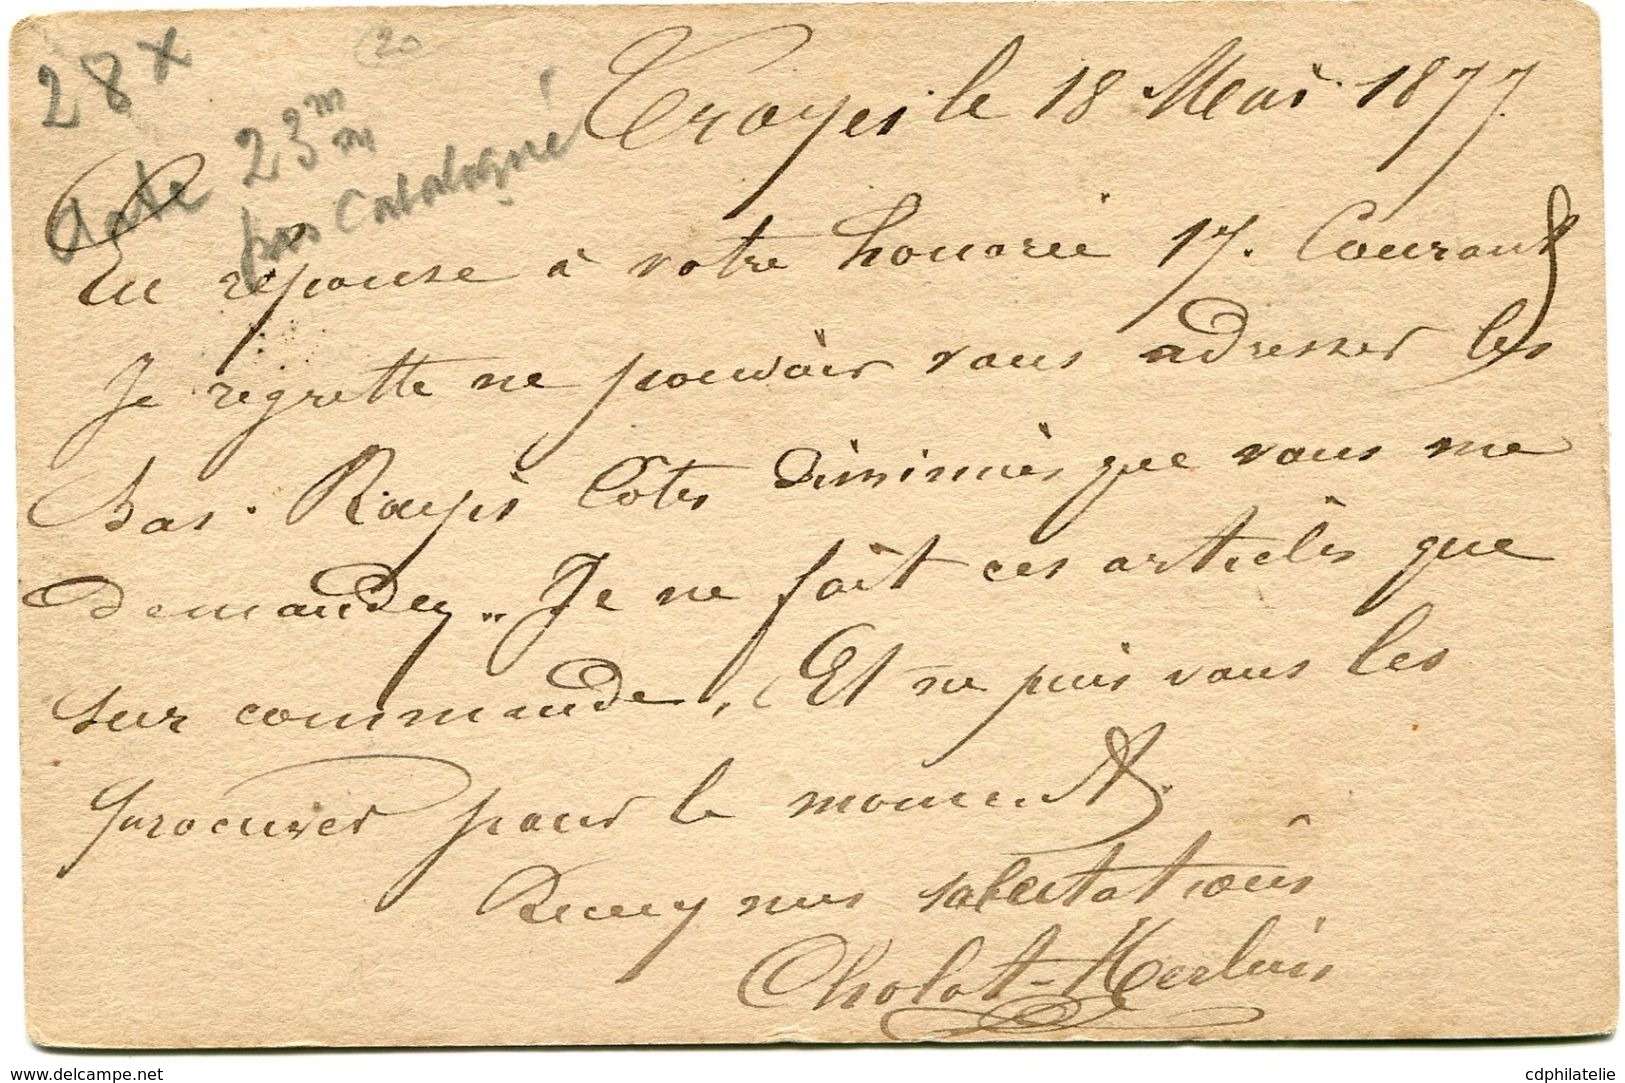 28x
(20
date 23 mm
pas Catalogué
Troyes le 18 Mai 1877.
En réponse à votre honorée 17. Courant
Je regrette ne pouvoir vous adresser les
bas. Rayés Cotes Diminués que vous me
demandez.. Je ne fait ces articles que
sur commande, Et ne puis vous les
procurer pour le moment.
Recevez mes salutations
Cholot-Merlin
www.delcampe.net
cdphilatelie